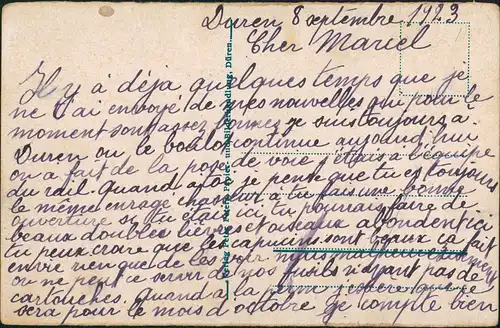 Duren 8 septembre 1923
Cher Marcel
Il y a déjà quelques temps que je
ne t'ai envoyé de mes nouvelles qui pour le
moment sont assez bonnes je suis toujours a
Duren ou le boulot continue aujourd'hui
on a fait de la pose de voie j'étais a l'équipe
du rail. Quand a toi je pense que tu es toujours
le même enragé chasseur a tu fais une bonne
ouverture si tu étais ici tu pourrais faire de
beaux doublés lièvres et oiseaux abondent ici
tu peux croire que les lapins sont beaux ça fait
envie rien que de les voir mais malheureusement
on ne peut ce servir de nos fusils n'ayant pas de
cartouches. Quand a la perme j'espère que ce
sera pour le mois d'octobre je compte bien